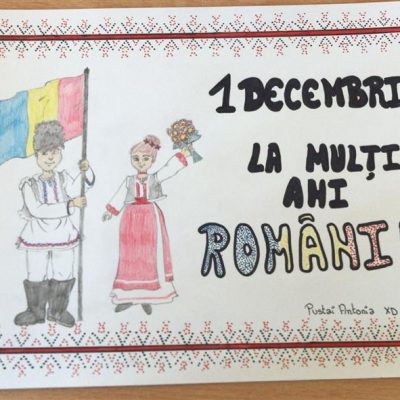 1 DECEMBRI
LA MULȚI
ANI
ROMÂNI
Pustai Antonia XD